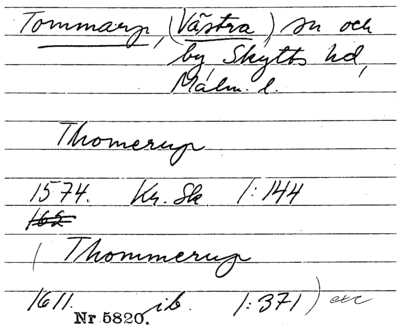 Tommarp, (Västra) sn och
by Skytts hd,
Malm. l.
Thomerup
1574. Kr. Sk 1:144
162
( Thommerup
1611. ib. 1:371) etc
Nr 5820.